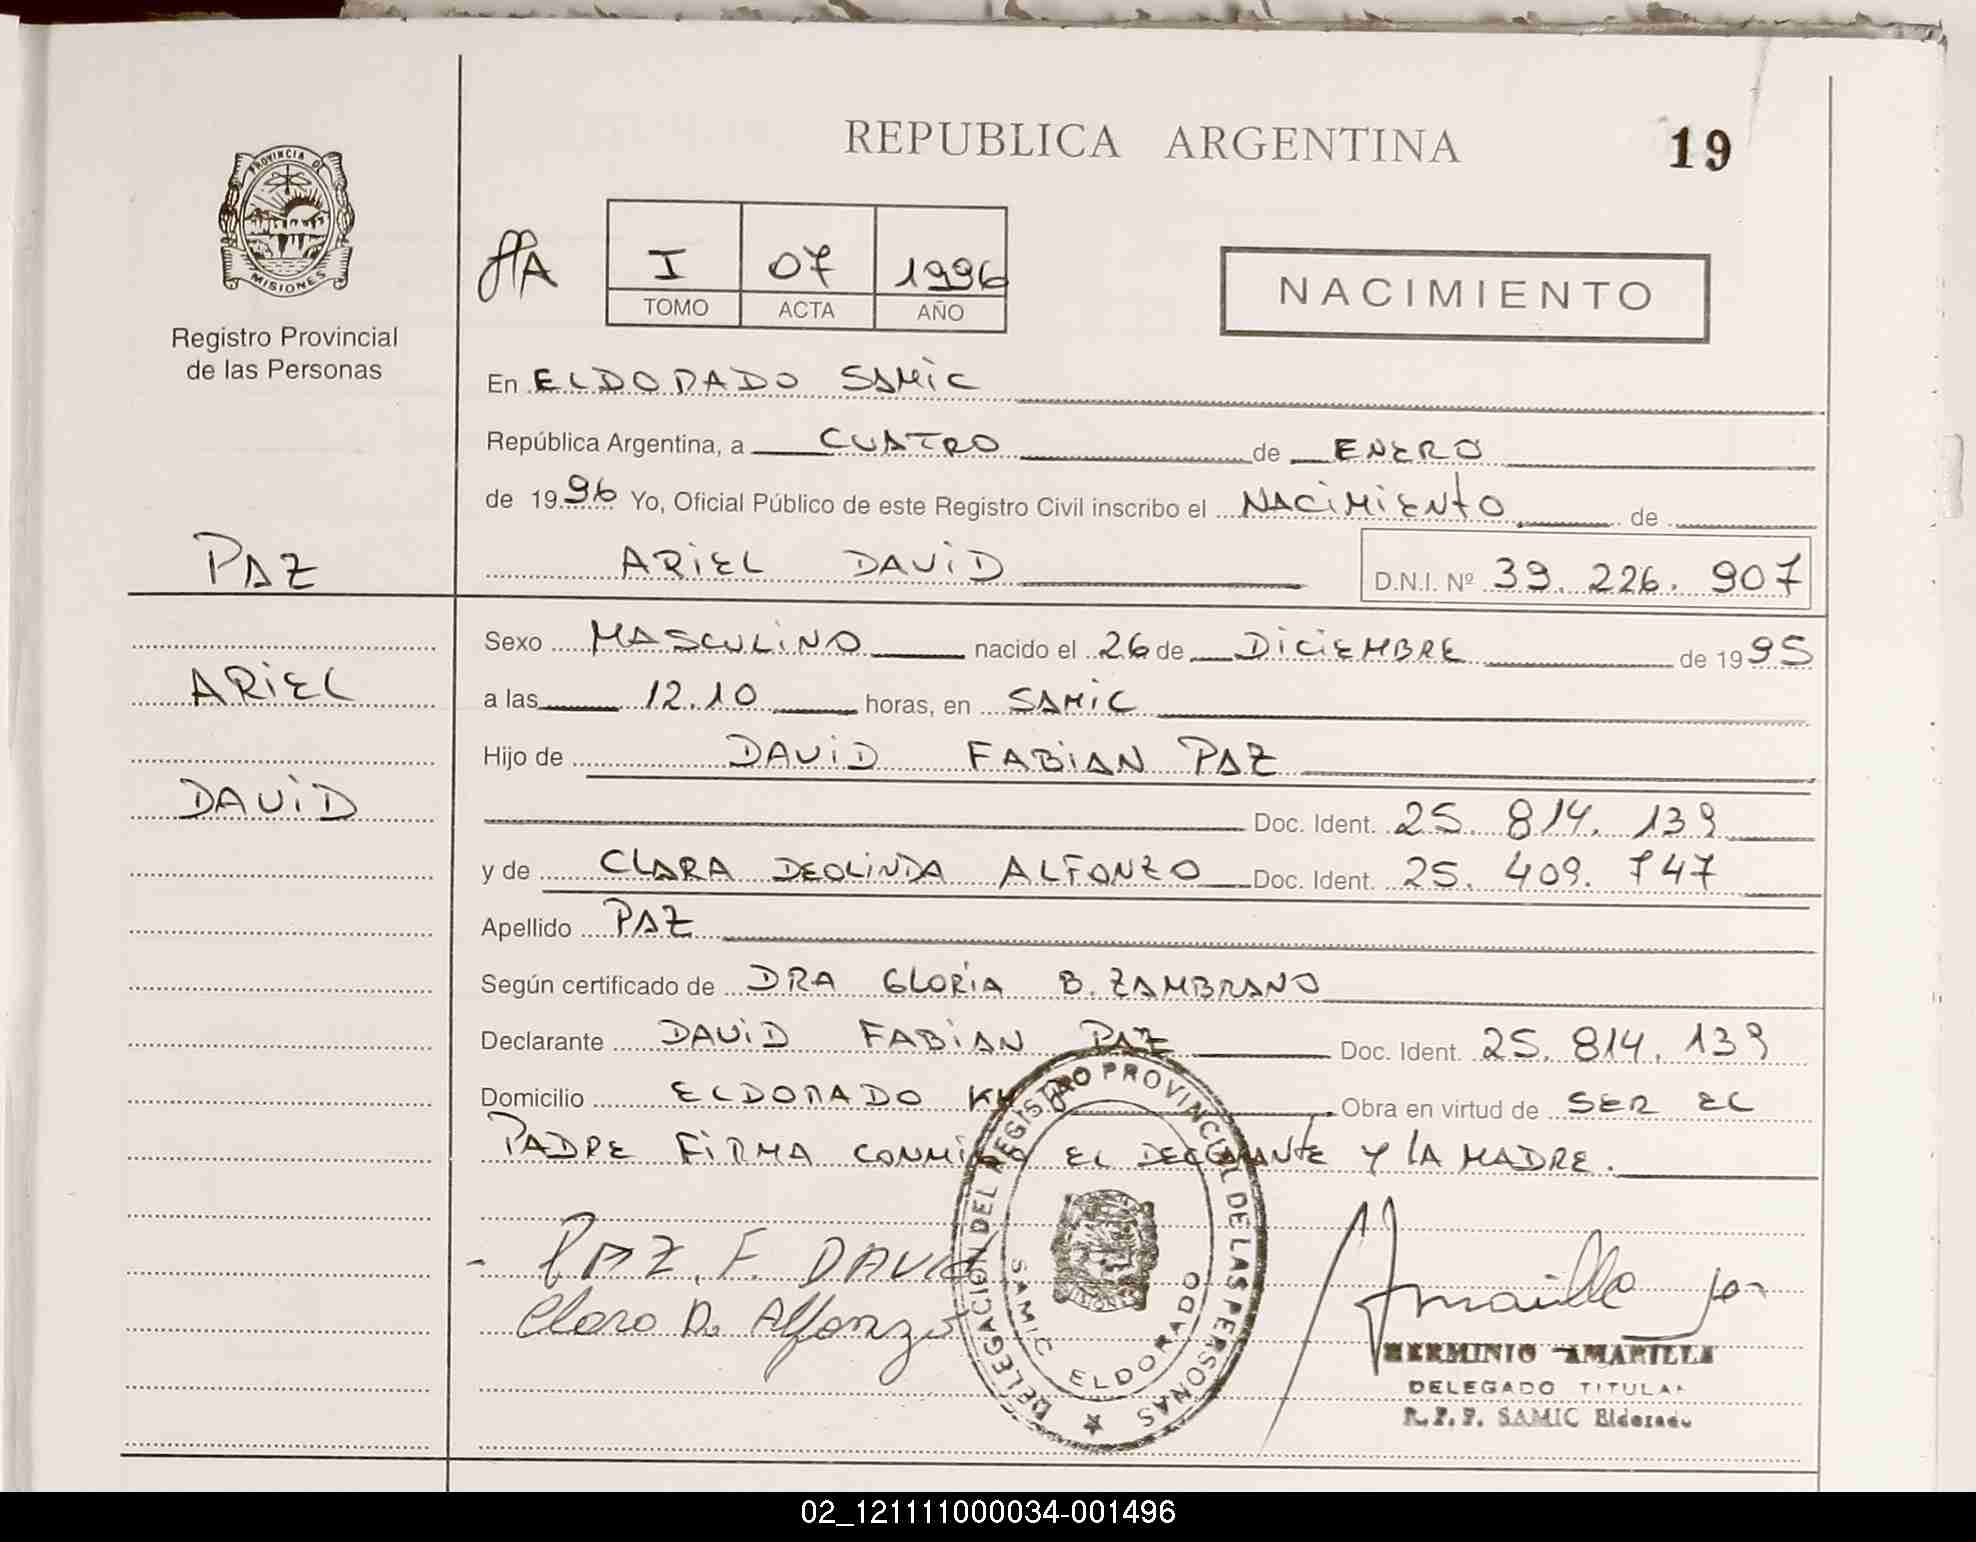 REPUBLICA ARGENTINA
19
PROVINCIA DE
MISIONES
Registro Provincial
de las Personas
I 07 1996
TOMO ACTA AÑO
NACIMIENTO
En ELDORADO SAMIC
República Argentina, a CUATRO de ENERO
de 1996 Yo, Oficial Público de este Registro Civil inscribo el NACIMIENTO de
PAZ
ARIEL DAVID D.N.I. Nº 39.226.907
Sexo MASCULINO nacido el 26 de DICIEMBRE de 1995
ARIEL
a las 12.10 horas, en SAMIC
Hijo de DAVID FABIAN PAZ
DAVID
Doc. Ident. 25.814.139
y de CLARA DEOLINDA ALFONZO Doc. Ident. 25.409.747
Apellido PAZ
Según certificado de DRA GLORIA B. ZAMBRANO
Declarante DAVID FABIAN PAZ Doc. Ident. 25.814.139
Domicilio ELDORADO Obra en virtud de SER EL
PADRE FIRMA CONMIGO EL DECLARANTE Y LA MADRE.
PAZ. F. DAVID
Clara D. Alfonzo
DELEGACION DEL REGISTRO PROVINCIAL DE LAS PERSONAS
SAMIC ELDORADO
HERMINIO AMARILLA
DELEGADO TITULAR
R.P.P. SAMIC Eldorado
02_121111000034-001496